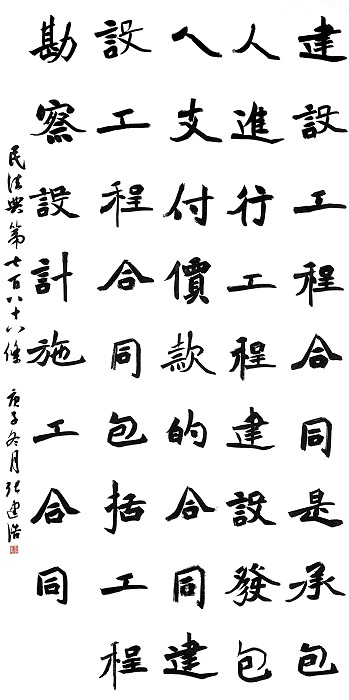 建設工程合同是承包
人進行工程建設發包
人支付價款的合同建
設工程合同包括工程
勘察設計施工合同
民法典第七百八十八條 庚子冬月张建浩